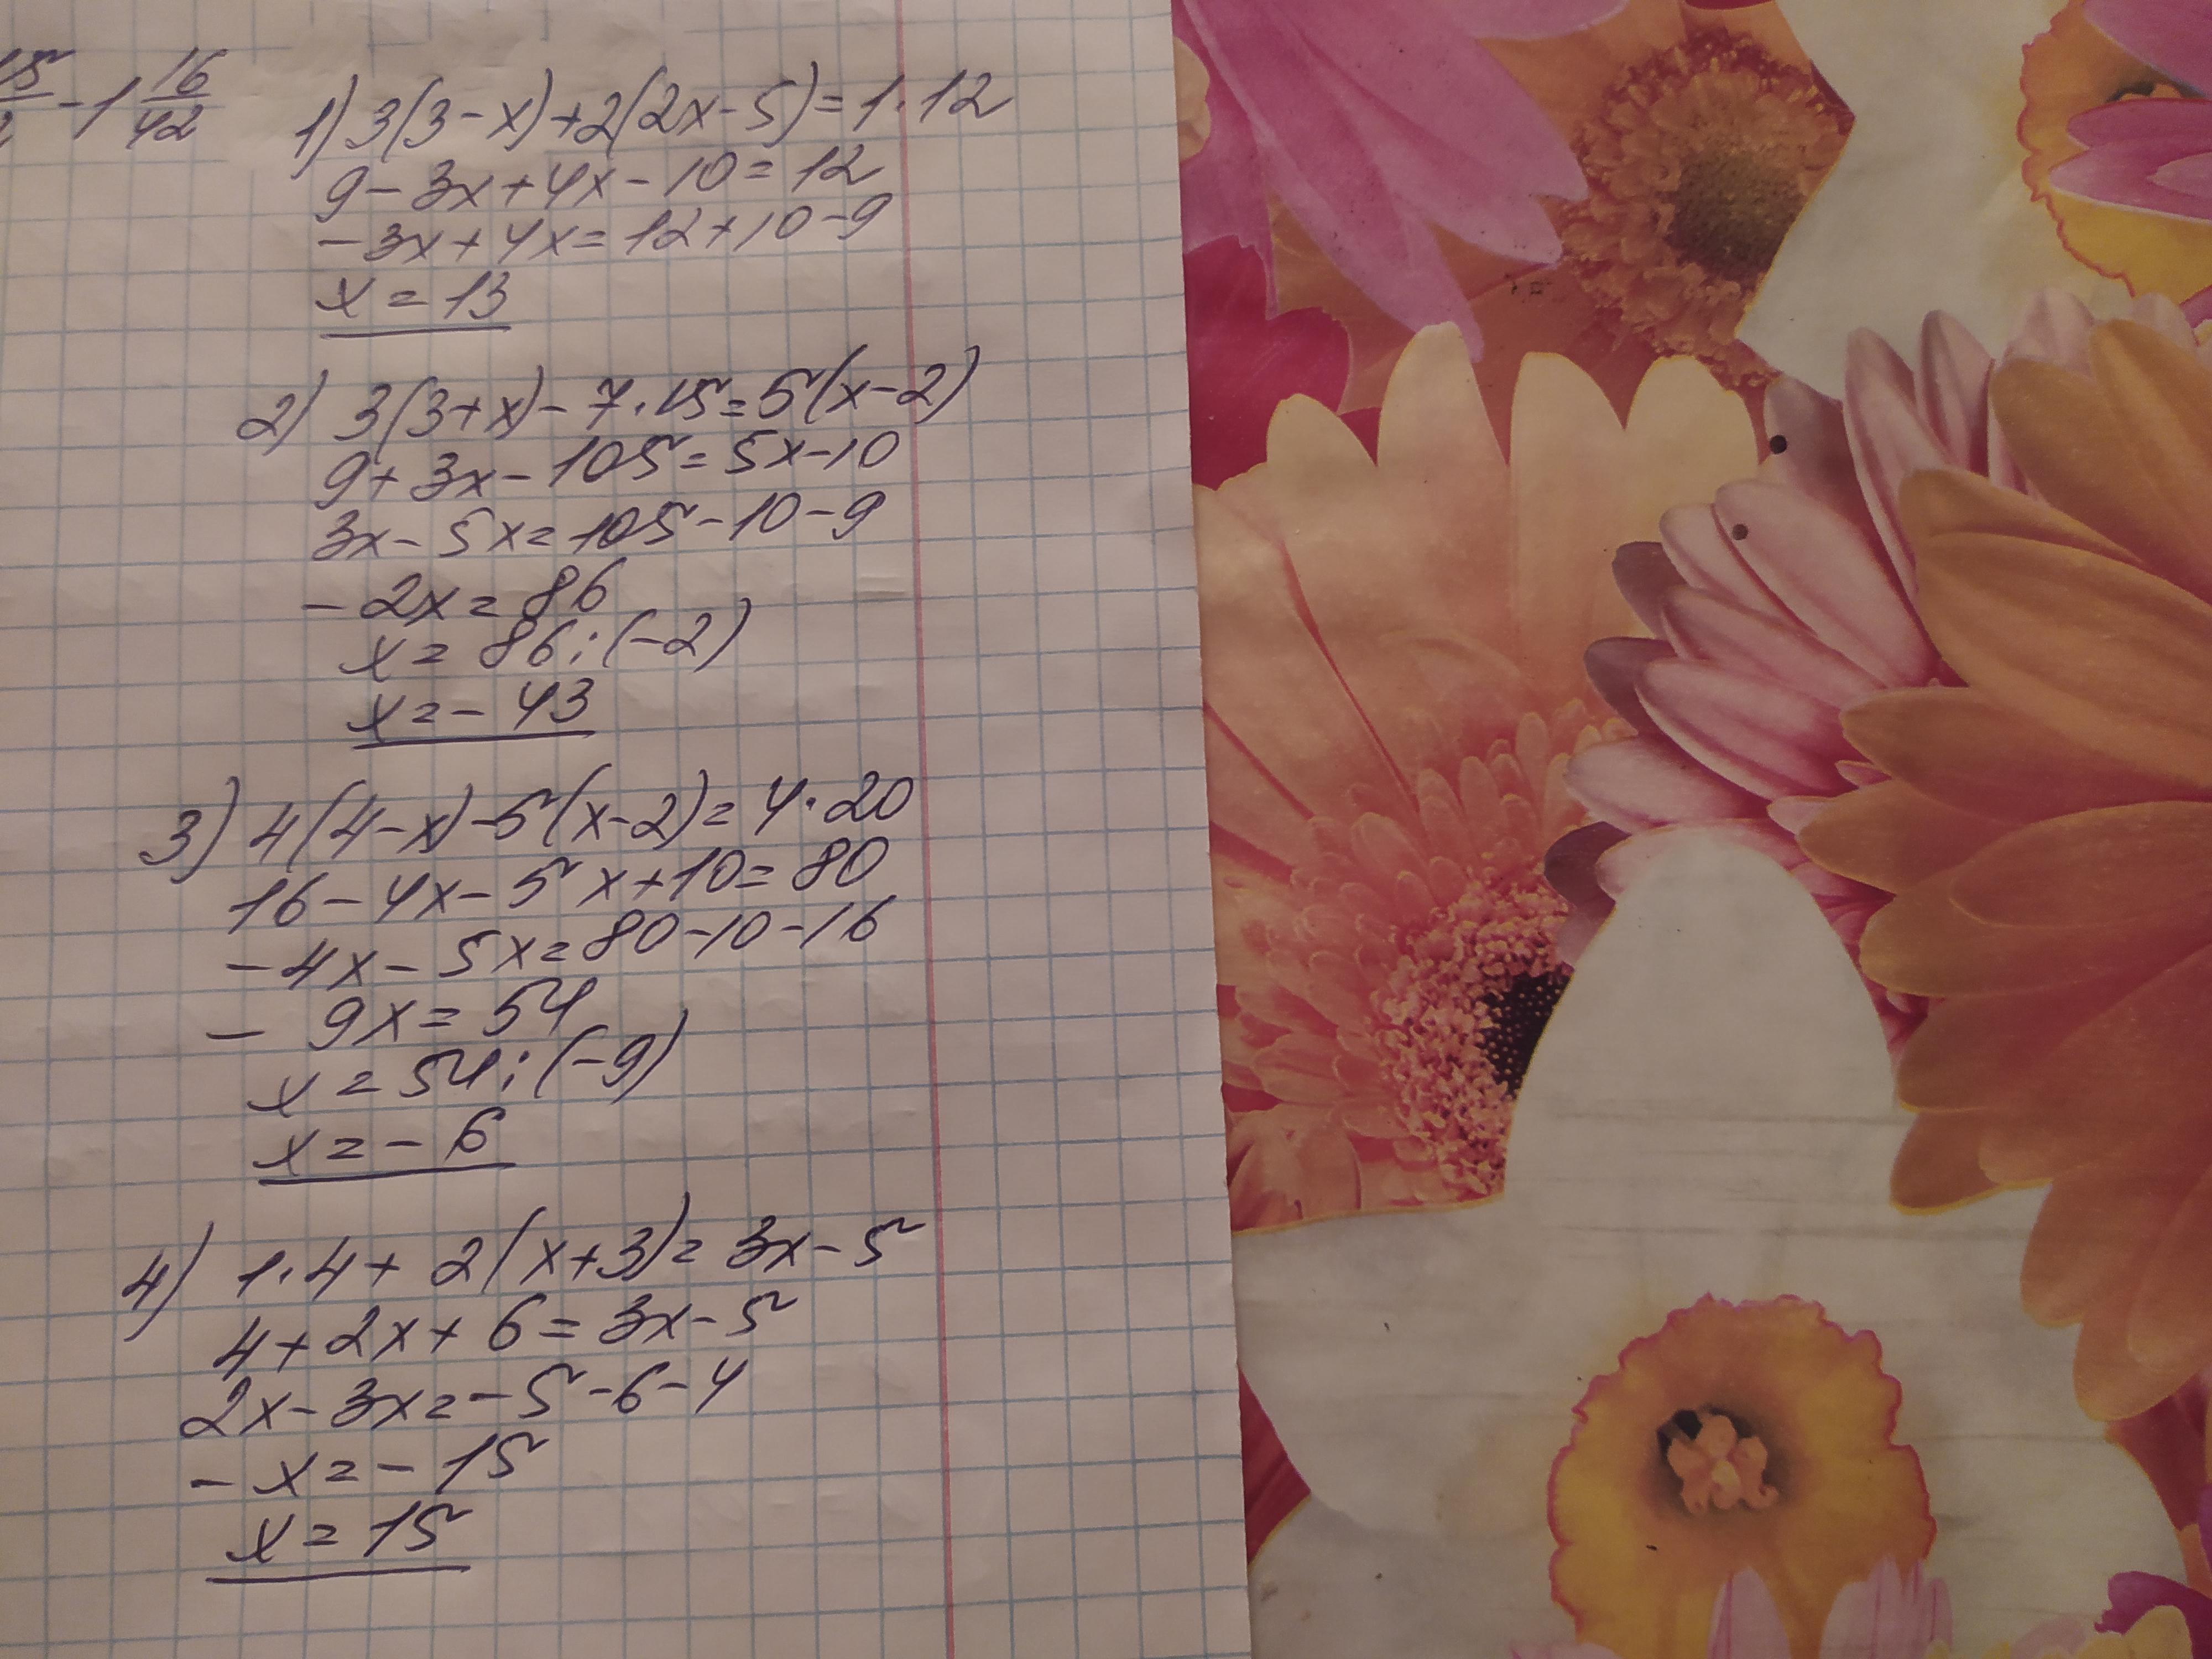 15/2 - 1 16/42
1) 3(3-x)+2(2x-5)=1·12
9-3x+4x-10=12
-3x+4x=12+10-9
x=13
2) 3(3+x)-7·15=5(x-2)
9+3x-105=5x-10
3x-5x=105-10-9
-2x=86
x=86:(-2)
x=-43
3) 4(4-x)-5(x-2)=4·20
16-4x-5x+10=80
-4x-5x=80-10-16
-9x=54
x=54:(-9)
x=-6
4) 1·4+2(x+3)=3x-5
4+2x+6=3x-5
2x-3x=-5-6-4
-x=-15
x=15